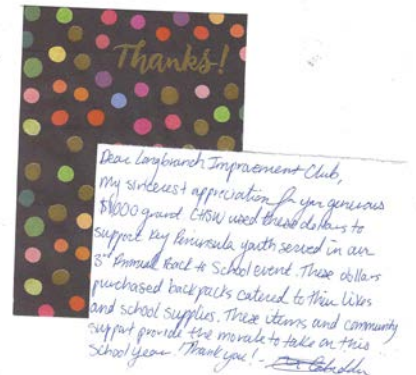 Thanks!
Dear Longbranch Improvement Club,
My sincerest appreciation for your generous
$1000 grant. CHSW used these dollars to
support Key Peninsula youth served in our
3rd Annual Back to School event. These dollars
purchased backpacks catered to their likes
and school supplies. These items and community
support provide the morale to take on this
School year! Thank you! -